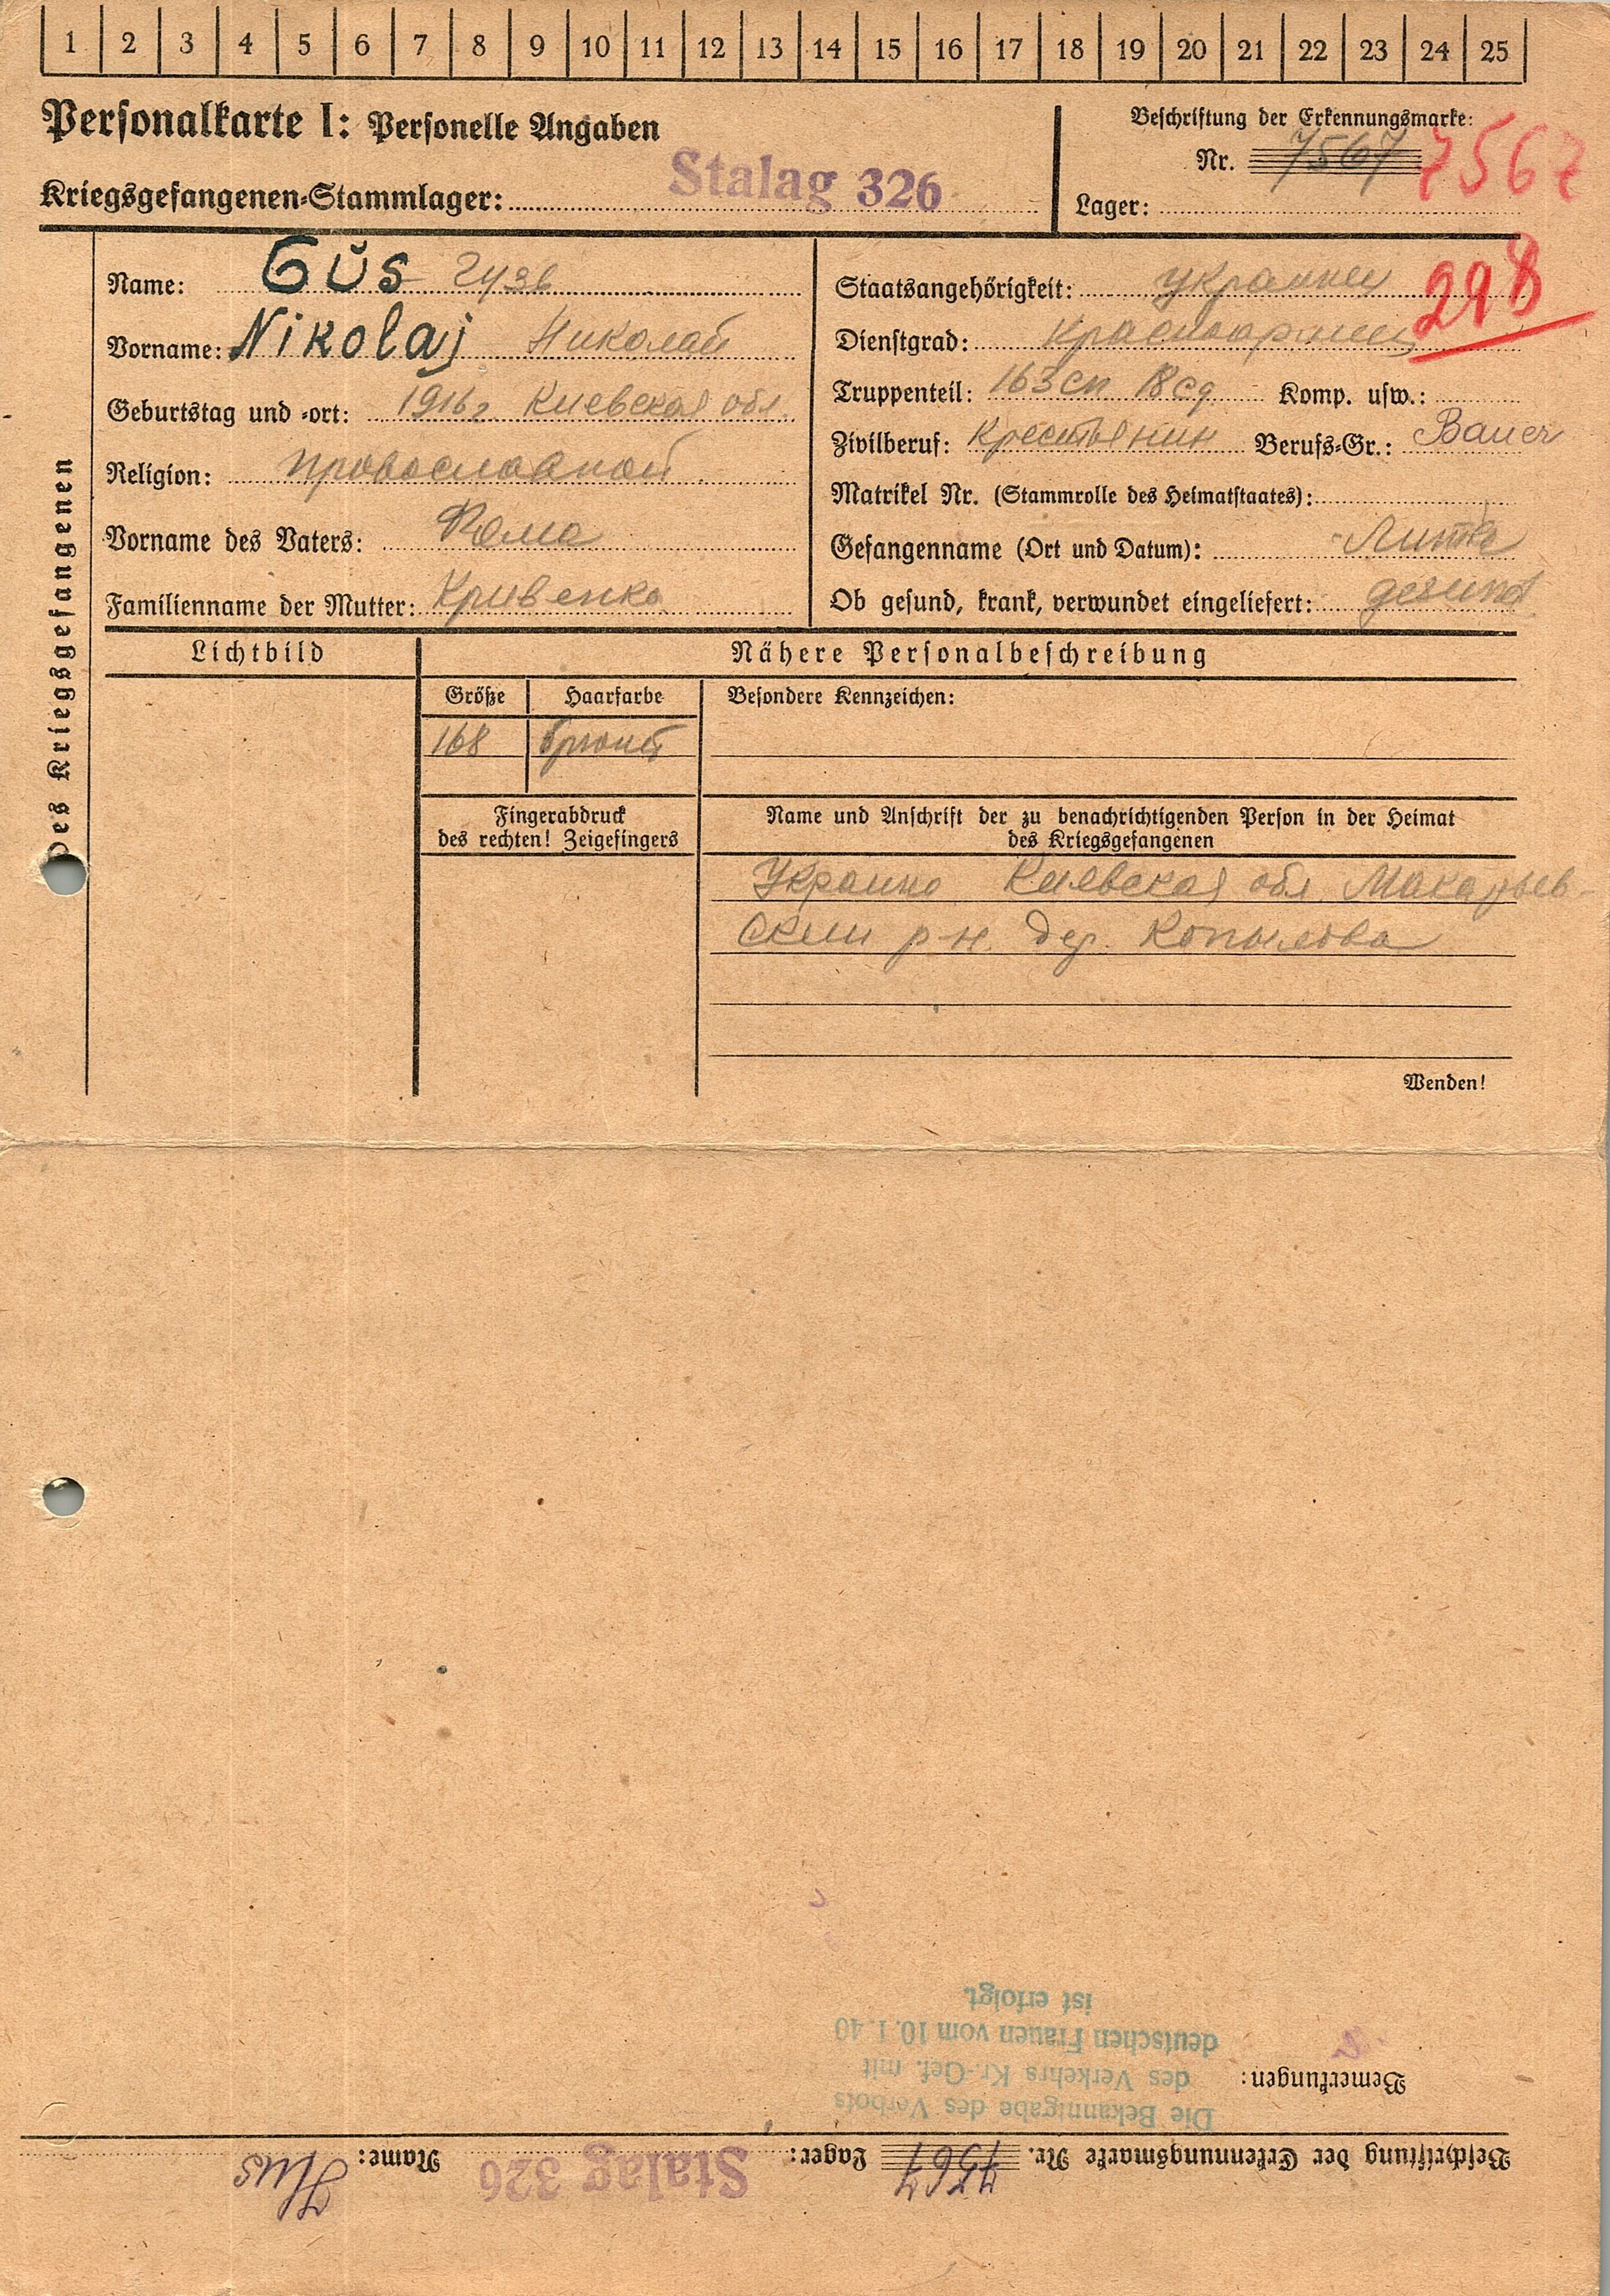 1 2 3 4 5 6 7 8 9 10 11 12 13 14 15 16 17 18 19 20 21 22 23 24 25
Personalkarte I: Personelle Angaben
Kriegsgefangenen-Stammlager: Stalag 326
Beschriftung der Erkennungsmarke:
Nr. 7567 7567
Lager:
Des Kriegsgefangenen
Name: Gŭs Гузь
Vorname: Nikolaj Николай
Geburtstag und -ort: 1916 г. Киевская обл.
Religion: провославной
Vorname des Vaters: Фома
Familienname der Mutter: Кривенко
Staatsangehörigkeit: Украинец 298
Dienstgrad: Красноармеец
Truppenteil: 163 сп 18 сд Komp. usw.:
Zivilberuf: Крестьянин Berufs-Gr.: Bauer
Matrikel Nr. (Stammrolle des Heimatstaates):
Gefangenname (Ort und Datum):
Ob gesund, krank, verwundet eingeliefert: gesund
Lichtbild
Nähere Personalbeschreibung
Größe Haarfarbe Besondere Kennzeichen:
168 брюнет
Fingerabdruck
des rechten! Zeigefingers
Name und Anschrift der zu benachrichtigenden Person in der Heimat
des Kriegsgefangenen
Украина Киевская обл Макарьев-
ский р-н. дер. Копылова
Wenden!
Beschriftung der Erkennungsmarke Nr. 7567 Lager: Stalag 326 Name: Hus
Bemerkungen:
Die Bekanntgabe des Verbots
des Verkehrs Kr.-Gef. mit
deutschen Frauen vom 10.1.40
ist erfolgt.